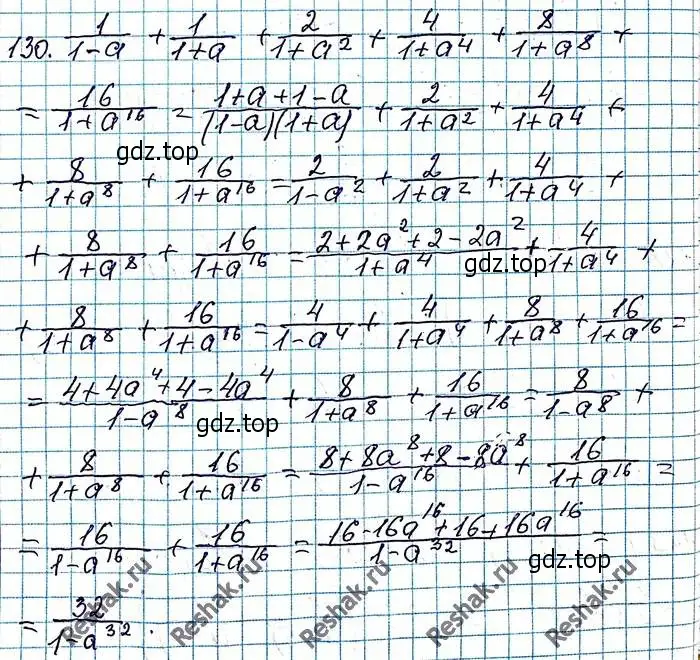 130. \frac{1}{1-a} + \frac{1}{1+a} + \frac{2}{1+a^2} + \frac{4}{1+a^4} + \frac{8}{1+a^8} +
= \frac{16}{1+a^{16}} = \frac{1+a+1-a}{(1-a)(1+a)} + \frac{2}{1+a^2} + \frac{4}{1+a^4} +
gdz.top
+ \frac{8}{1+a^8} + \frac{16}{1+a^{16}} = \frac{2}{1-a^2} + \frac{2}{1+a^2} + \frac{4}{1+a^4} +
+ \frac{8}{1+a^8} + \frac{16}{1+a^{16}} = \frac{2+2a^2+2-2a^2}{1+a^4} + \frac{4}{1+a^4} +
gdz.top
+ \frac{8}{1+a^8} + \frac{16}{1+a^{16}} = \frac{4}{1-a^4} + \frac{4}{1+a^4} + \frac{8}{1+a^8} + \frac{16}{1+a^{16}} =
= \frac{4+4a^4+4-4a^4}{1-a^8} + \frac{8}{1+a^8} + \frac{16}{1+a^{16}} = \frac{8}{1-a^8} +
gdz.top
+ \frac{8}{1+a^8} + \frac{16}{1+a^{16}} = \frac{8+8a^8+8-8a^8}{1-a^{16}} + \frac{16}{1+a^{16}} =
= \frac{16}{1-a^{16}} + \frac{16}{1+a^{16}} = \frac{16-16a^{16}+16+16a^{16}}{1-a^{32}} =
gdz.top
= \frac{32}{1-a^{32}}.
Reshak.ru
Reshak.ru
Reshak.ru
Reshak.ru
Reshak.ru